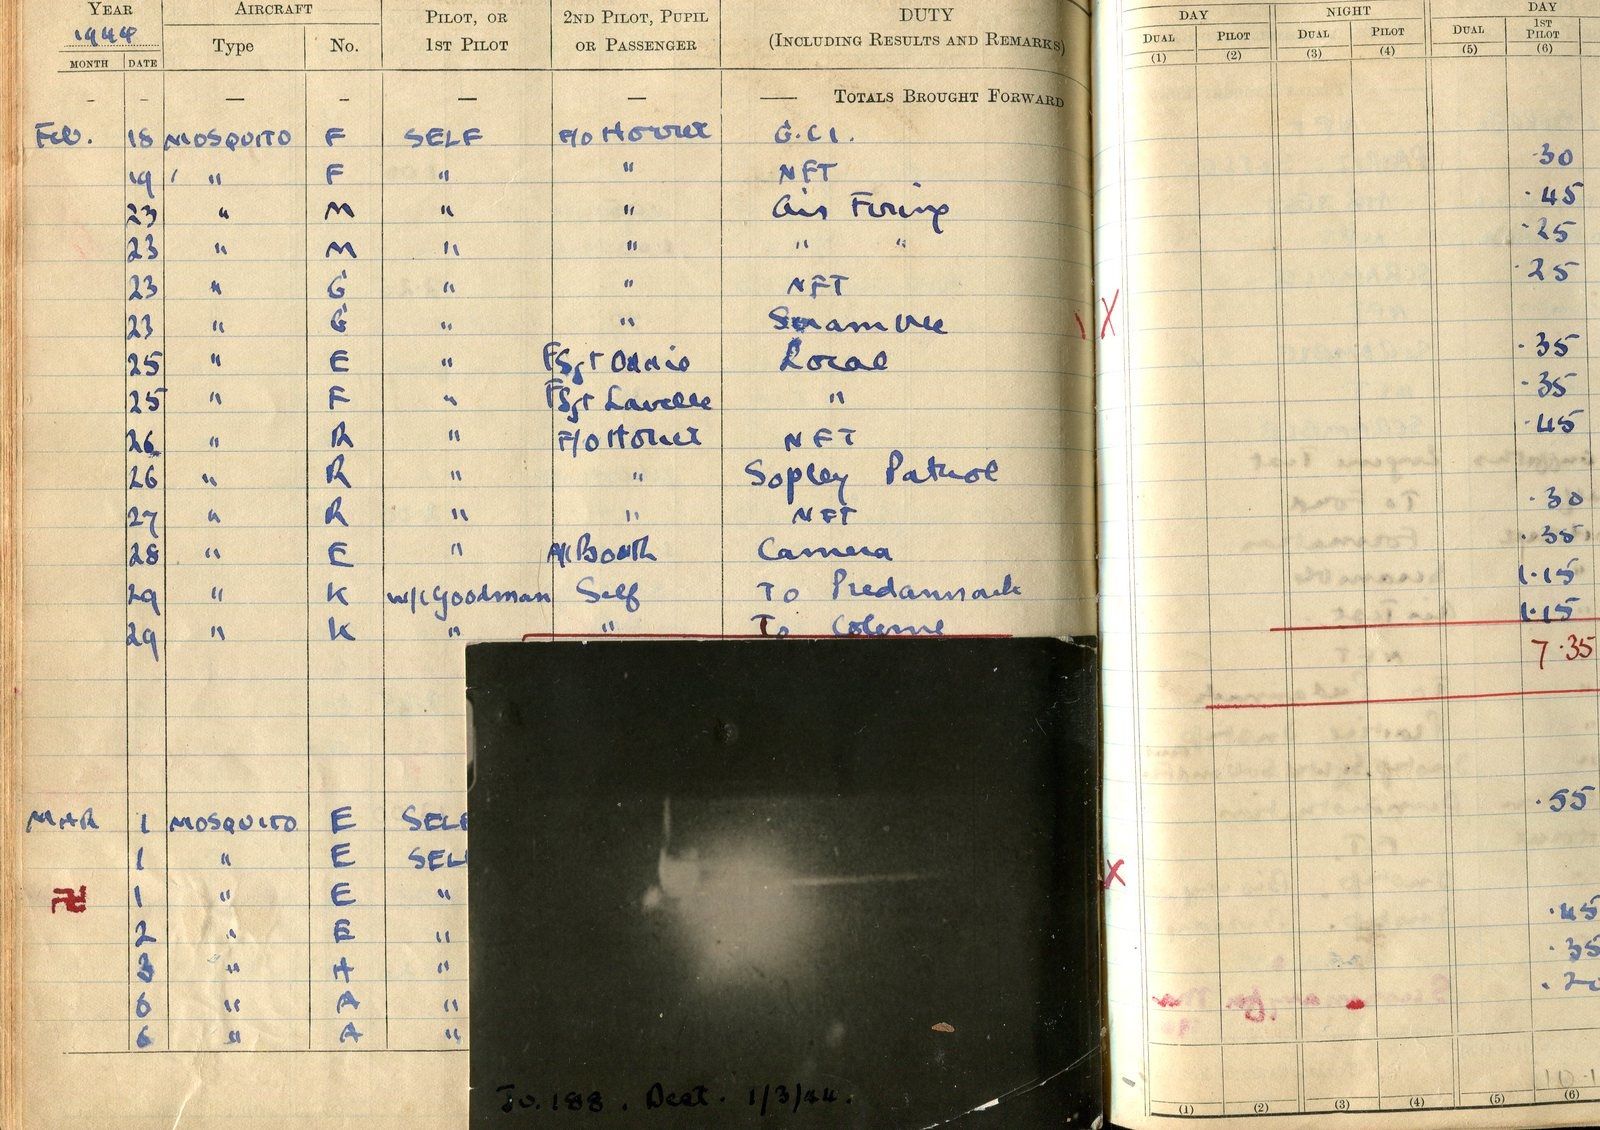 YEAR AIRCRAFT PILOT, OR 2ND PILOT, PUPIL DUTY DAY NIGHT DAY
1944 Type No. 1ST PILOT OR PASSENGER (INCLUDING RESULTS AND REMARKS) DUAL PILOT DUAL PILOT DUAL 1ST PILOT
MONTH DATE (1) (2) (3) (4) (5) (6)
- - — - — — — TOTALS BROUGHT FORWARD
Feb. 18 MOSQUITO F SELF F/O G.C.I. .30
19 " F " " NFT .45
23 " M " " Air Firing .25
23 " M " " " " .25
23 " G " " NFT
23 " G " " Scramble X .35
25 " E " FSgt Local .35
25 " F " FSgt Lavelle " .45
26 " R " F/O NFT
26 " R " " Sopley Patrol .30
27 " R " " NFT .35
28 " E " Booth Camera 1.15
29 " K W/C Goodman Self To Predannack 1.15
29 " K " " To Colerne
7.35
MAR 1 MOSQUITO E SELF .55
1 " E SELF
1 " E " X
2 " E " .45
3 " H " .35
6 " A " .20
6 " A "
Ju. 188. Dest. 1/3/44.
(1) (2) (3) (4) (5) (6)